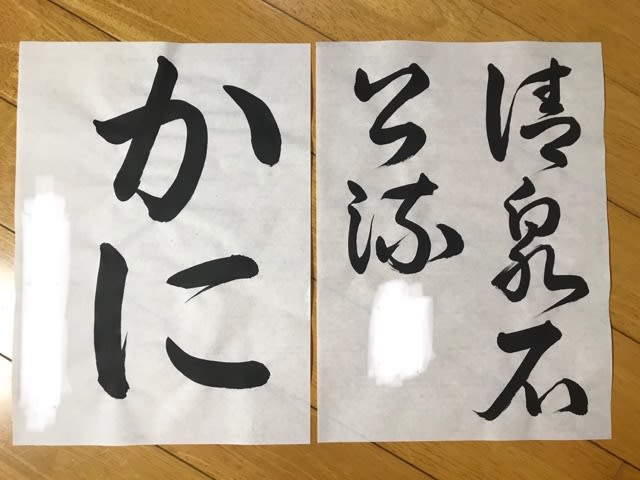 清泉石
上流
かに